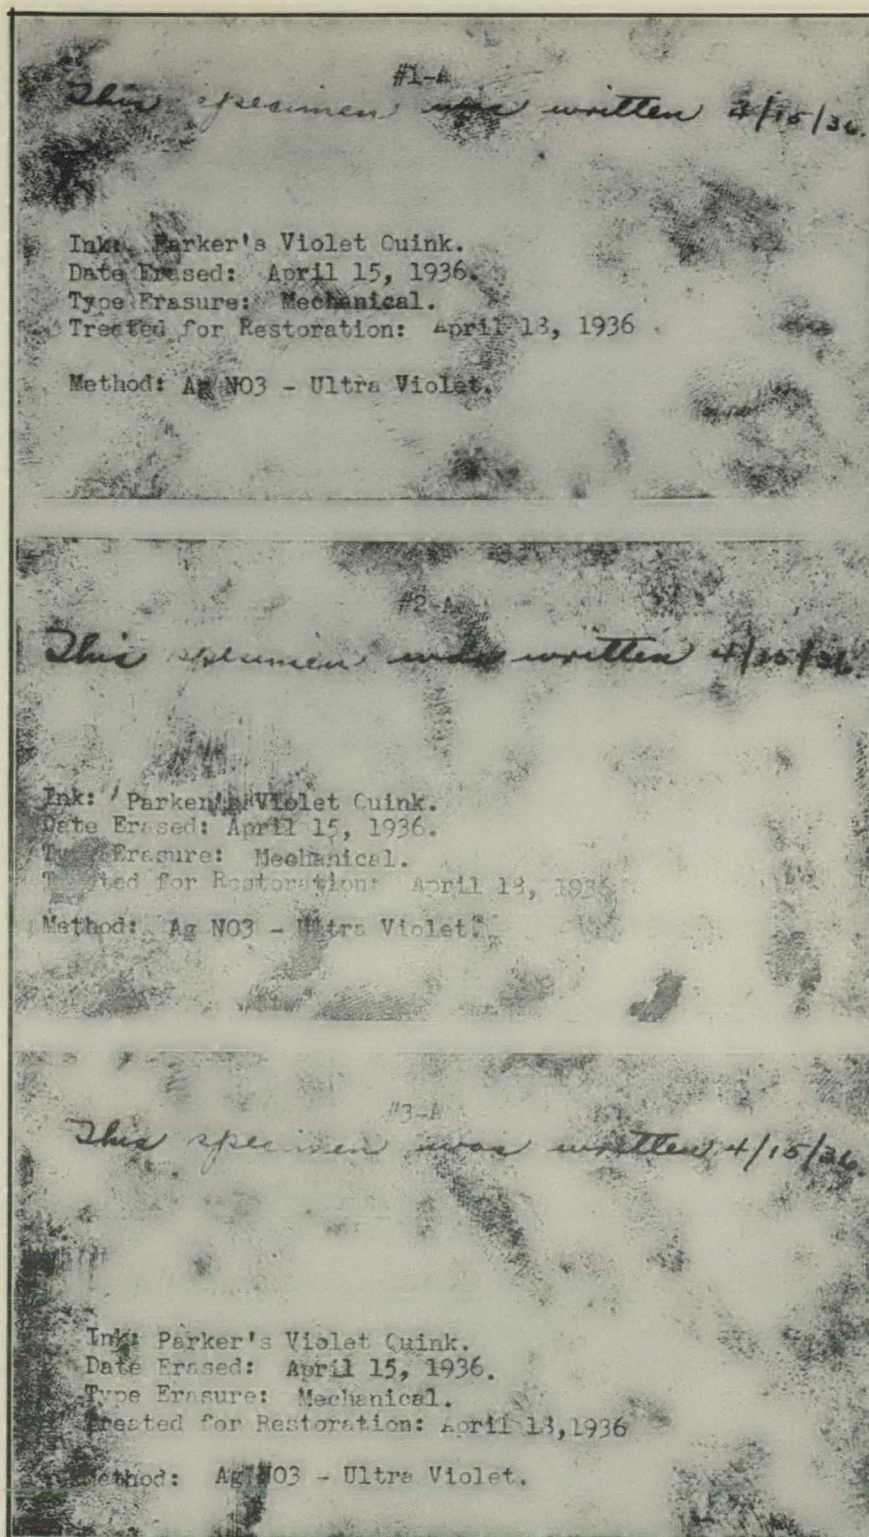 #1-A
This specimen was written 4/15/36.
Ink: Parker's Violet Quink.
Date Erased: April 15, 1936.
Type Erasure: Mechanical.
Treated for Restoration: April 18, 1936
Method: Ag NO3 - Ultra Violet.
#2-A
This specimen was written 4/15/36.
Ink: Parker's Violet Quink.
Date Erased: April 15, 1936.
Type Erasure: Mechanical.
Treated for Restoration: April 18, 1936
Method: Ag NO3 - Ultra Violet.
#3-A
This specimen was written 4/15/36.
Ink: Parker's Violet Quink.
Date Erased: April 15, 1936.
Type Erasure: Mechanical.
Treated for Restoration: April 18,1936
Method: Ag NO3 - Ultra Violet.